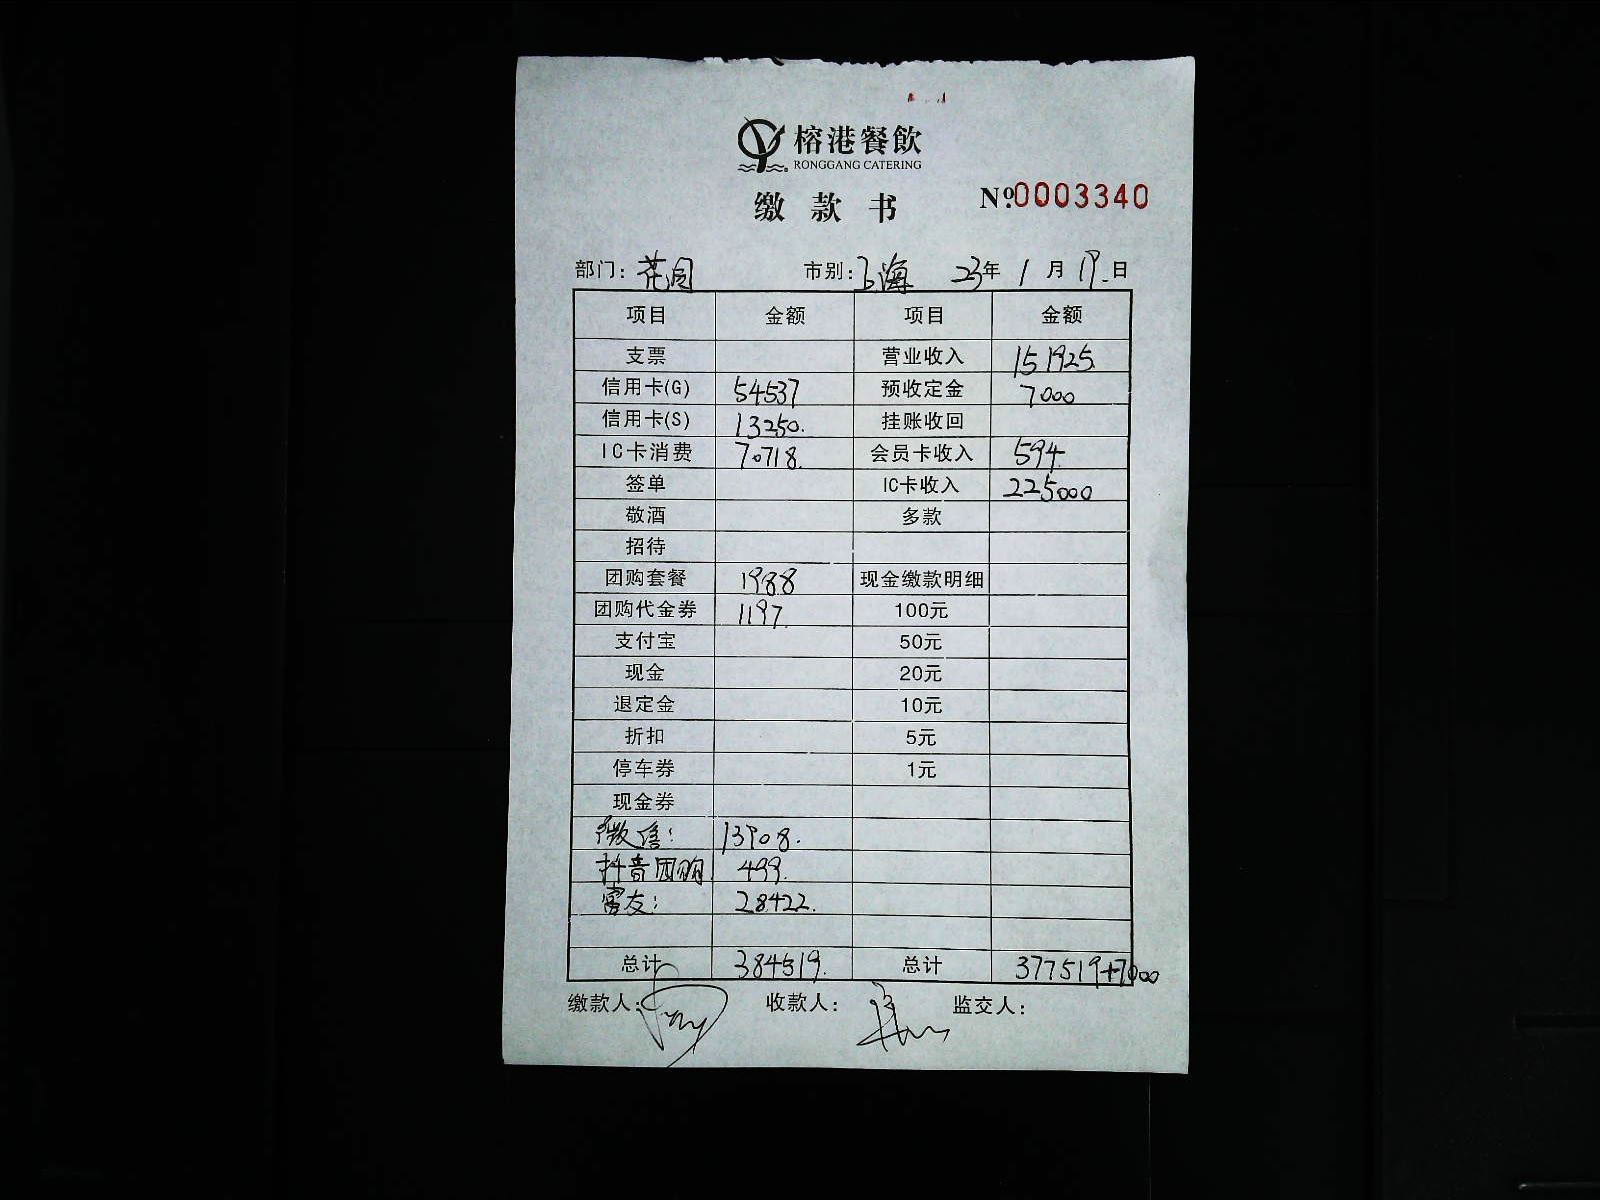 榕港餐飲
RONGGANG CATERING
缴款书
Nº:0003340
部门: 花园 市别: 上海 23年 1月 19日
项目 金额 项目 金额
支票 营业收入 151925
信用卡(G) 54537 预收定金 7000
信用卡(S) 13250. 挂账收回
IC卡消费 70718. 会员卡收入 594
签单 IC卡收入 225000
敬酒 多款
招待
团购套餐 1988 现金缴款明细
团购代金券 1197 100元
支付宝 50元
现金 20元
退定金 10元
折扣 5元
停车券 1元
现金券
微信: 13908.
抖音团购 499.
友: 28422.
总计 384519. 总计 377519+7000
缴款人: 收款人: 监交人: